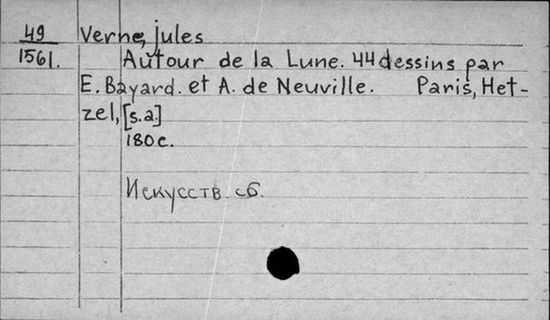 49 Verne, jules
1561. Autour de la Lune. 44 dessins par
E. Bayard. et A. de Neuville. Paris, Het-
zel, [s.a.]
180 c.
Искусств. сб.